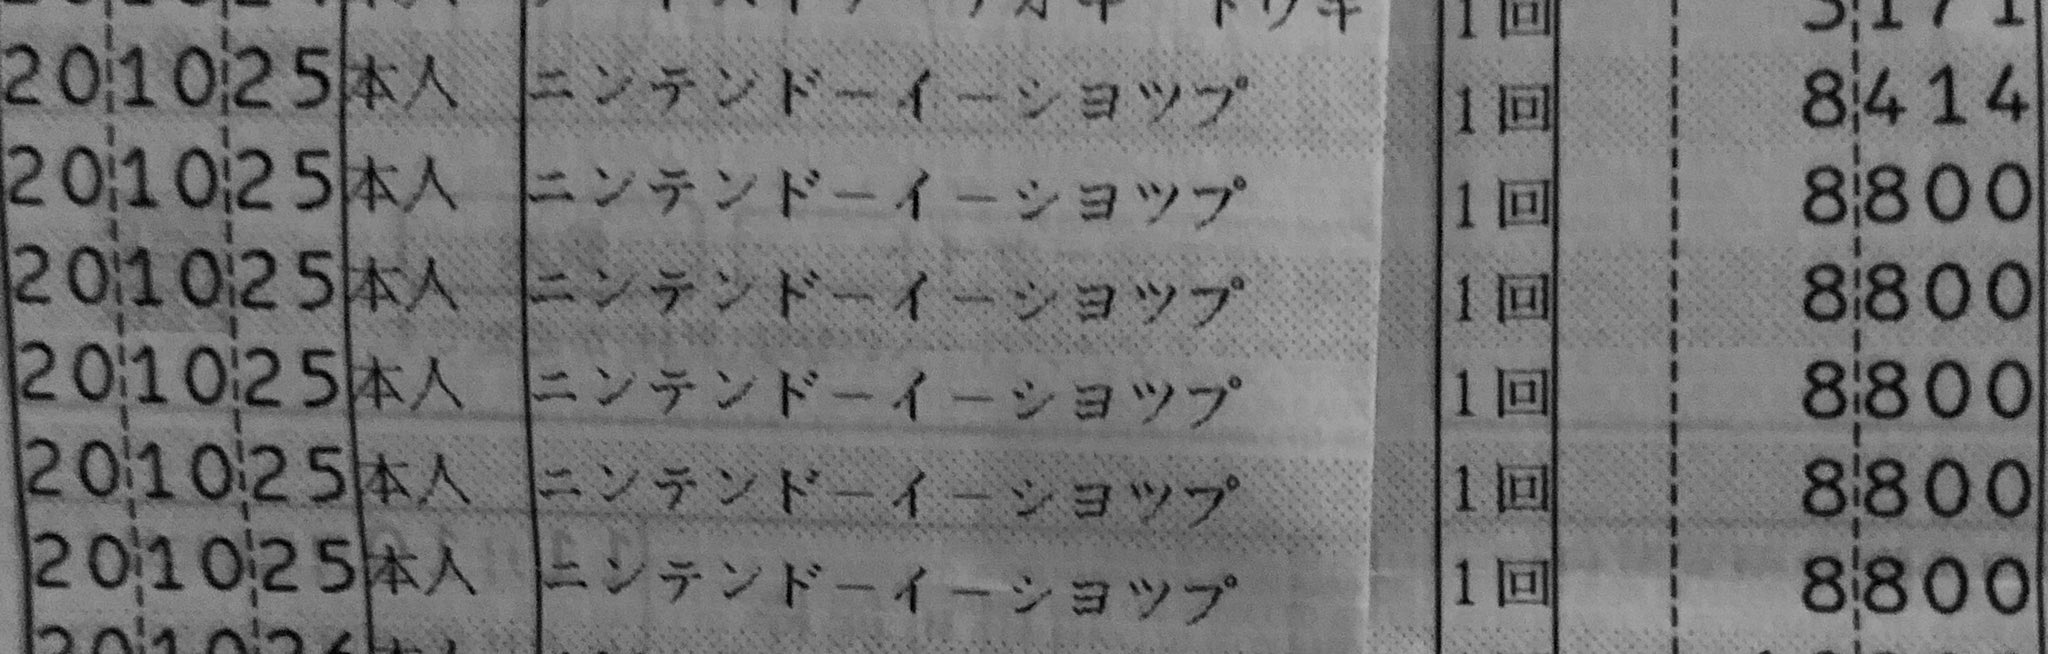 1回 5171
20 10 25 本人 ニンテンドーイーショツプ 1回 8414
20 10 25 本人 ニンテンドーイーショツプ 1回 8800
20 10 25 本人 ニンテンドーイーショツプ 1回 8800
20 10 25 本人 ニンテンドーイーショツプ 1回 8800
20 10 25 本人 ニンテンドーイーショツプ 1回 8800
20 10 25 本人 ニンテンドーイーショツプ 1回 8800
20 10 26 本人